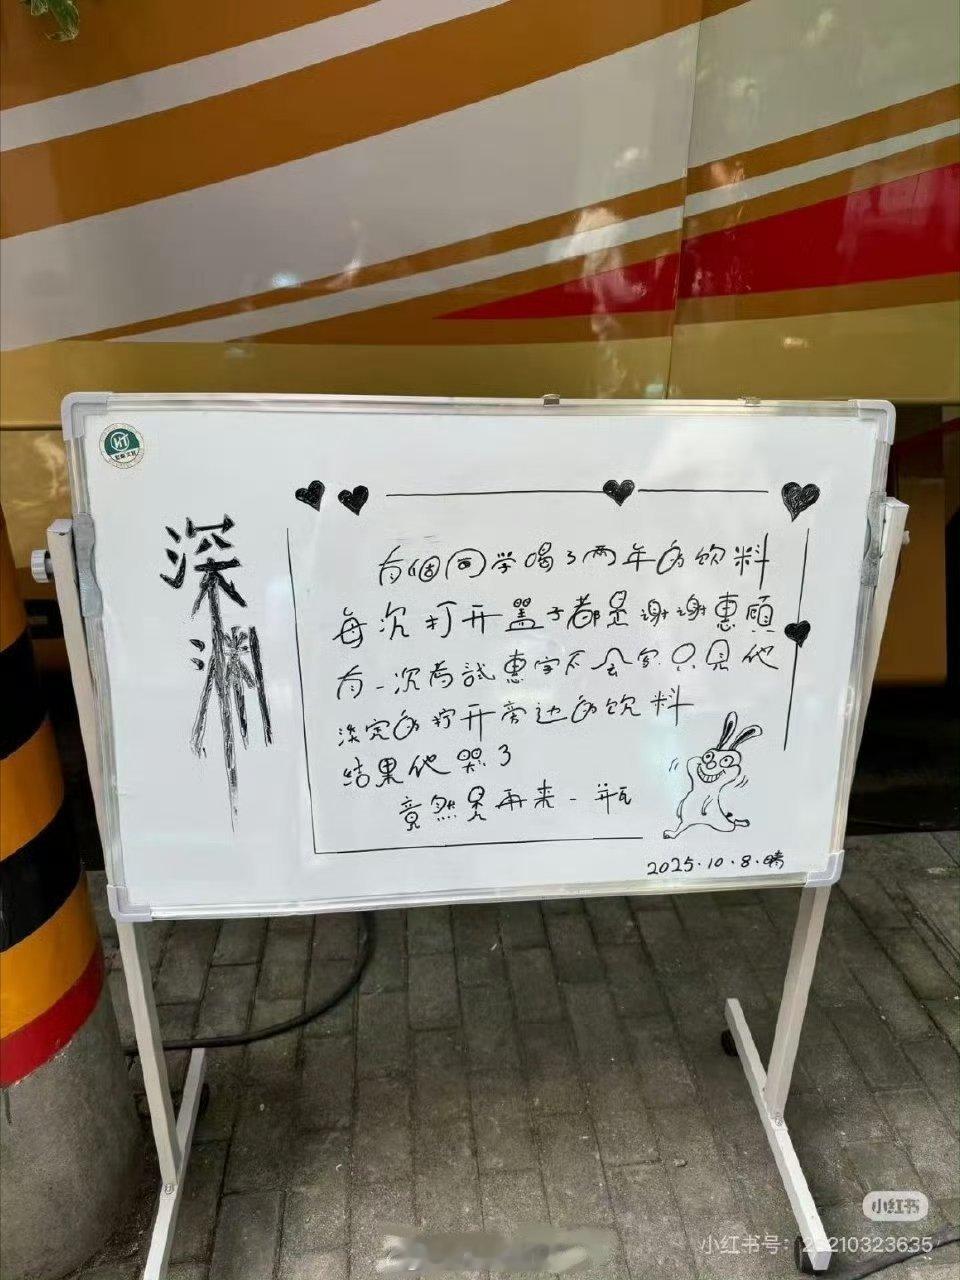 深渊
有個同学喝了两年的饮料
每次打开盖子都是谢谢惠顾
有一次考試惠字不会写只见他
淡定的拧开旁边的饮料
结果他哭了
竟然是再来一瓶
2025.10.8.晴
小红书
小红书号:23210323635